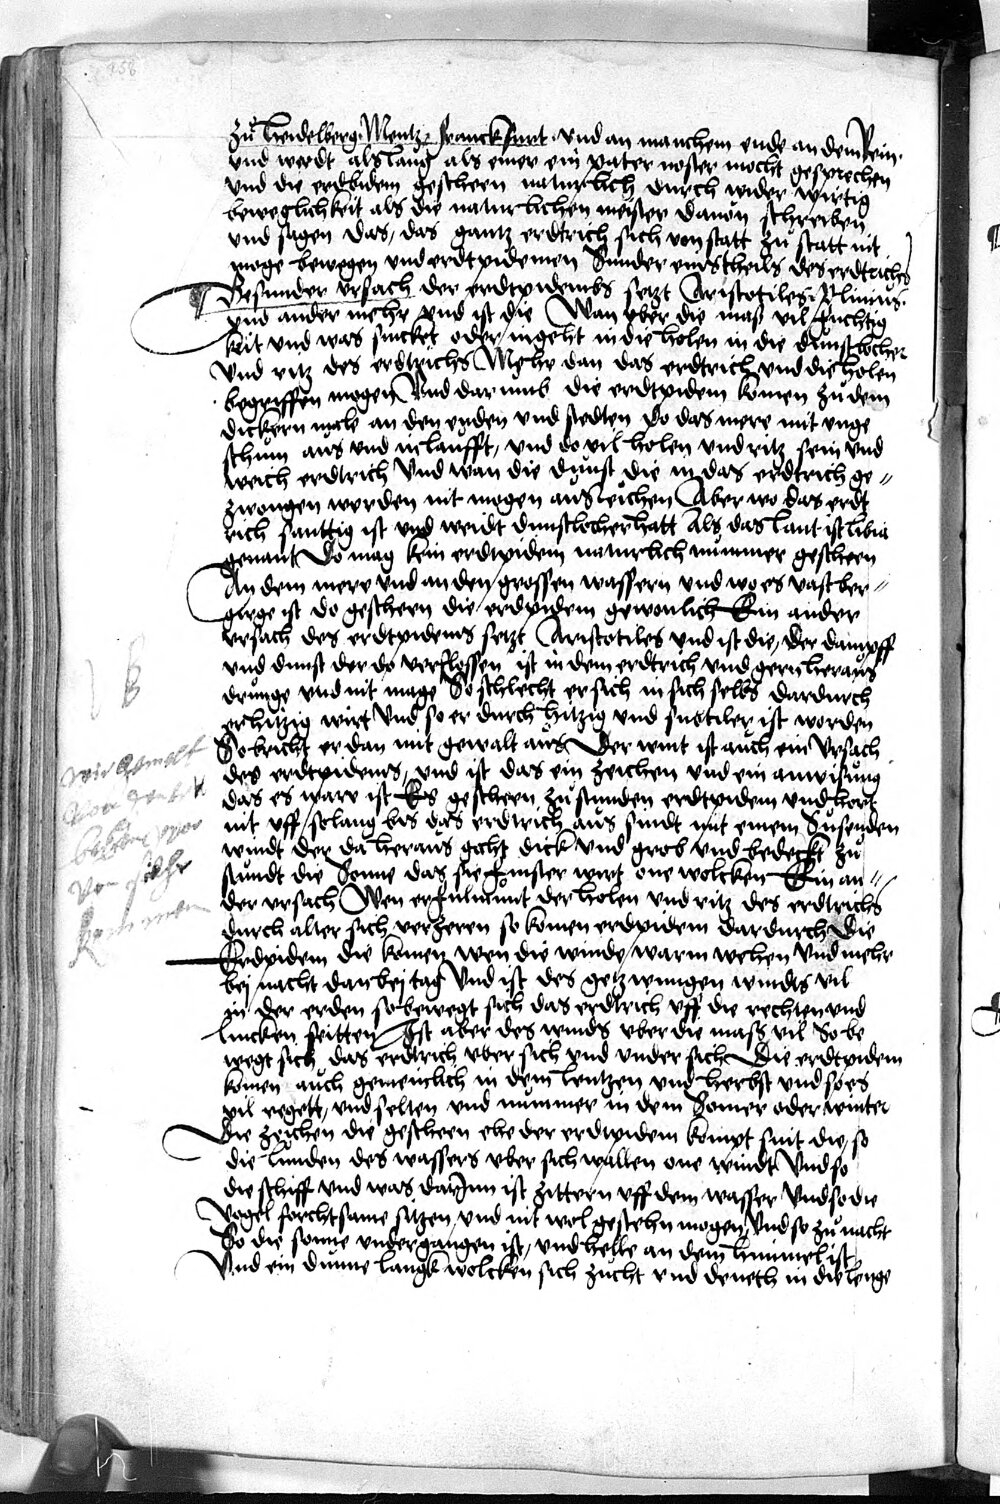 zů Heidelberg Mentz franckfurt vnd an manchem ende an dem Rein
vnd werdt als lang als einer ein pater noster mocht gesprechen
vnd die erdbidem gescheen naturlich durch wider wirtig
beweglichkeit als die naturlichen meister dauon schreiben
vnd sagen das das gantz erdtrich sich von statt zu statt nit
moge bewegen vnd erdtpidemen Sunder eins theils des erdtrichs
Besunder vrsach der erdtpidembs setzt Aristotiles Plinius
vnd ander mehr vnd ist die Wan vber die maß vil fuchtig
keit vnd was sincket oder ingeht in die holen in die dunstlocher
vnd ritz des erdtrichs Mehr dan das erdtrich vnd die holen
begriffen mogen Vnd dar umb die erdtpidem komen zu dem
dickern male an den enden vnd stedten Do das mere mit vnge
stum aus vnd in laufft vnd do vil holen vnd ritz sein vnd
weich erdtrich Vnd wan die dunst die in das erdtrich ge
zwongen werden nit mogen aus Aber wo das erdt
rich santtig ist vnd weidt dunstlocher hatt Als das lant ist libia
genant Do mag kein erdtpidem naturlich nummer gescheen
An dem mere vnd an den grossen wassern vnd wo es vast ber
girge ist do gescheen die erdpidem gewonlich Ein ander
vrsach des erdtpidems setzt Aristotiles vnd ist die der dampff
vnd dunst der do verflossen ist in dem erdtrich vnd gern heraus
drunge vnd nit mage So schlecht er sich in sich selbs dardurch
er hitzig wirt Vnd so er durch hitzig vnd subtiler ist worden
So bricht er dan mit gewalt aus Der wint ist auch ein vrsach
des erdtpidems vnd ist das ein zeichen vnd ein anwisung
das es ware ist Es gescheen zu stunden erdtpidem vnd hort
nit vff solang bis das erdtrich aus mit einem Susenden
windt der da heraus geht dick vnd grob vnd bedeckt zu
stundt die Sonne das sie finster wirt one wolcken Ein an
der vrsach Wen der holen vnd ritz des erdtrichs
durch alter sich verzeren so komen erdpidem dardurch Die
Erdpidem die komen wen die winde warm wehen Vnd mehr
bej nacht dan bej tag Vnd ist des getzwungen windts vil
in der erden so bewegt sich das erdtrich vff die rechten vnd
lincken seitten Ist aber des winds vber die maß vil So be
wegt sich das erdtrich vber sich vnd vnder sich Die erdtpidem
komen auch gemeinlich in dem lentzen vnd herbst vnd so es
vil regett vnd selten vnd nummer in dem Somer oder winter
Die zeichen die gescheen ehe der erdtpidem kompt sint die so
die des wassers vber sich wallen one windt Vnd so
die schiff vnd was darinn ist zittern vff dem wasser Vnd so die
vogel forchtsame sitzen vnd nit wol gestehn mogen Vnd so zu nacht
So die sonne vndergangen ist vnd helle an dem himmel ist
Vnd ein dunne langk wolcken sich zucht vnd deneth in die lenge